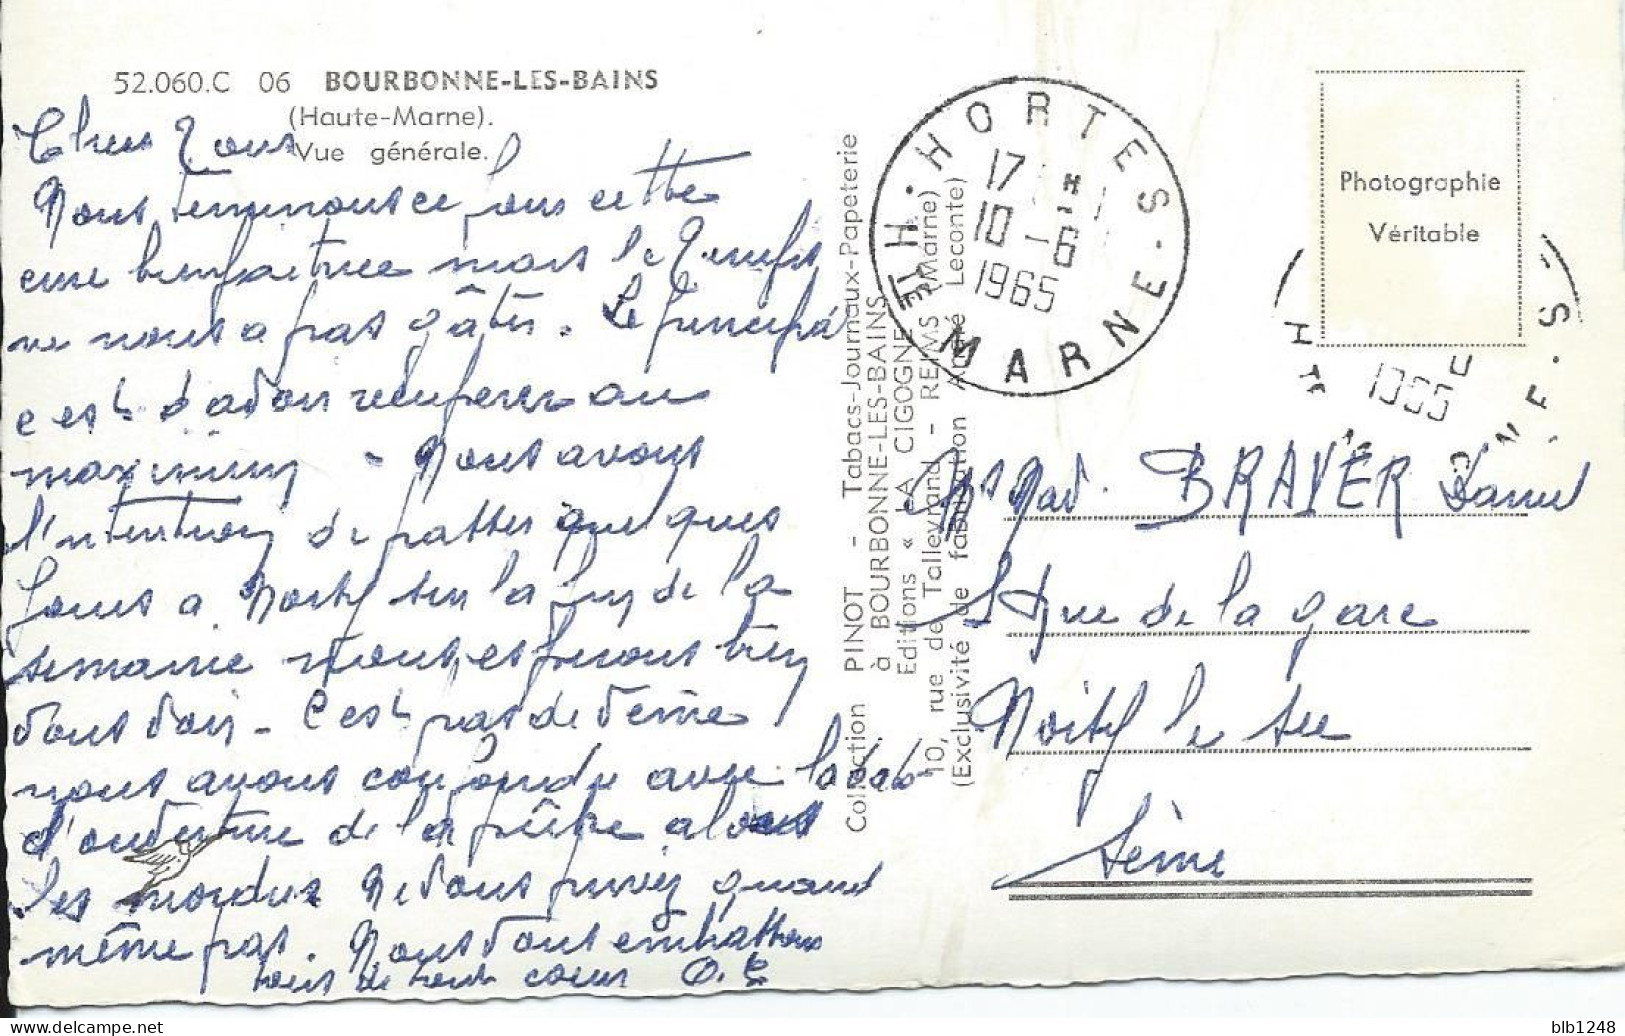 52.060.C 06 BOURBONNE-LES-BAINS
(Haute-Marne).
Vue générale.
Chers Tous
Nous terminons ce jour cette
cure bienfaitrice mais le Temps
ne nous a pas gâtés. Le principal
c'est d'avoir récupérer au
maximum - Nous avons
l'intention de passer quelques
jours a Noisy sur la fin de la
semaine nous espérons bien
vous voir - C'est pas de veine
nous avons confondu avec la date
d'ouverture de la pêche alors
les mordus Ne vous privez quand
même pas. Nous vous embrassons
tous de tout coeur
Collection PINOT - Tabacs-Journaux-Papeterie
à BOURBONNE-LES-BAINS
Editions « LA CIGOGNE
10, rue de Talleyrand - REIMS (Marne)
(Exclusivité de fabrication André Leconte)
HORTES
17 H
10 - 6
1965
HTE MARNE
Photographie
Véritable
1965
BRAYER Daniel
rue de la gare
Noisy le sec
Seine
blb1248